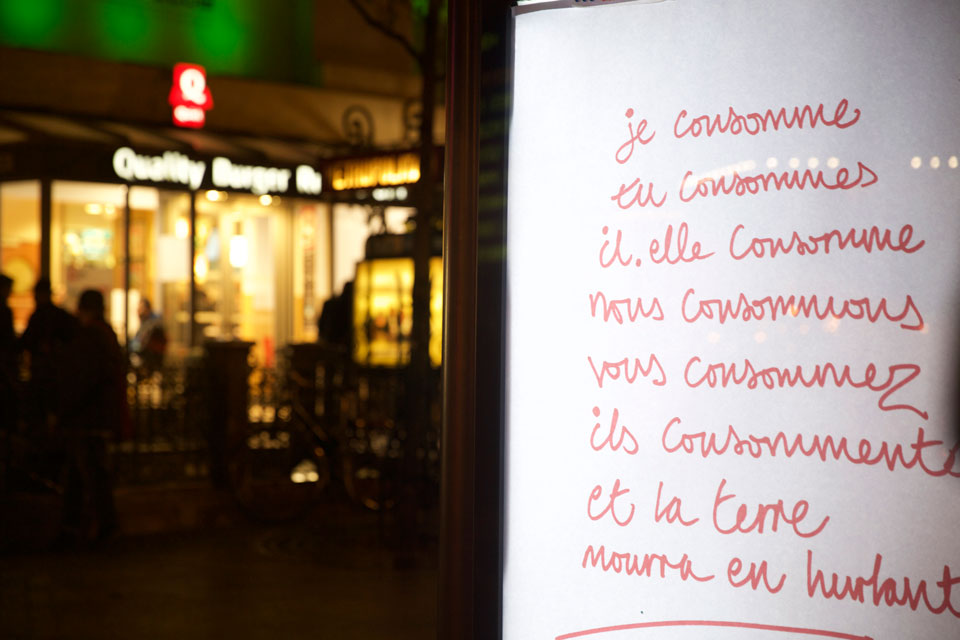 Q
Quality Burger
je consomme
tu consommes
il.elle consomme
nous consommons
vous consommez
ils consomment
et la terre
mourra en hurlant